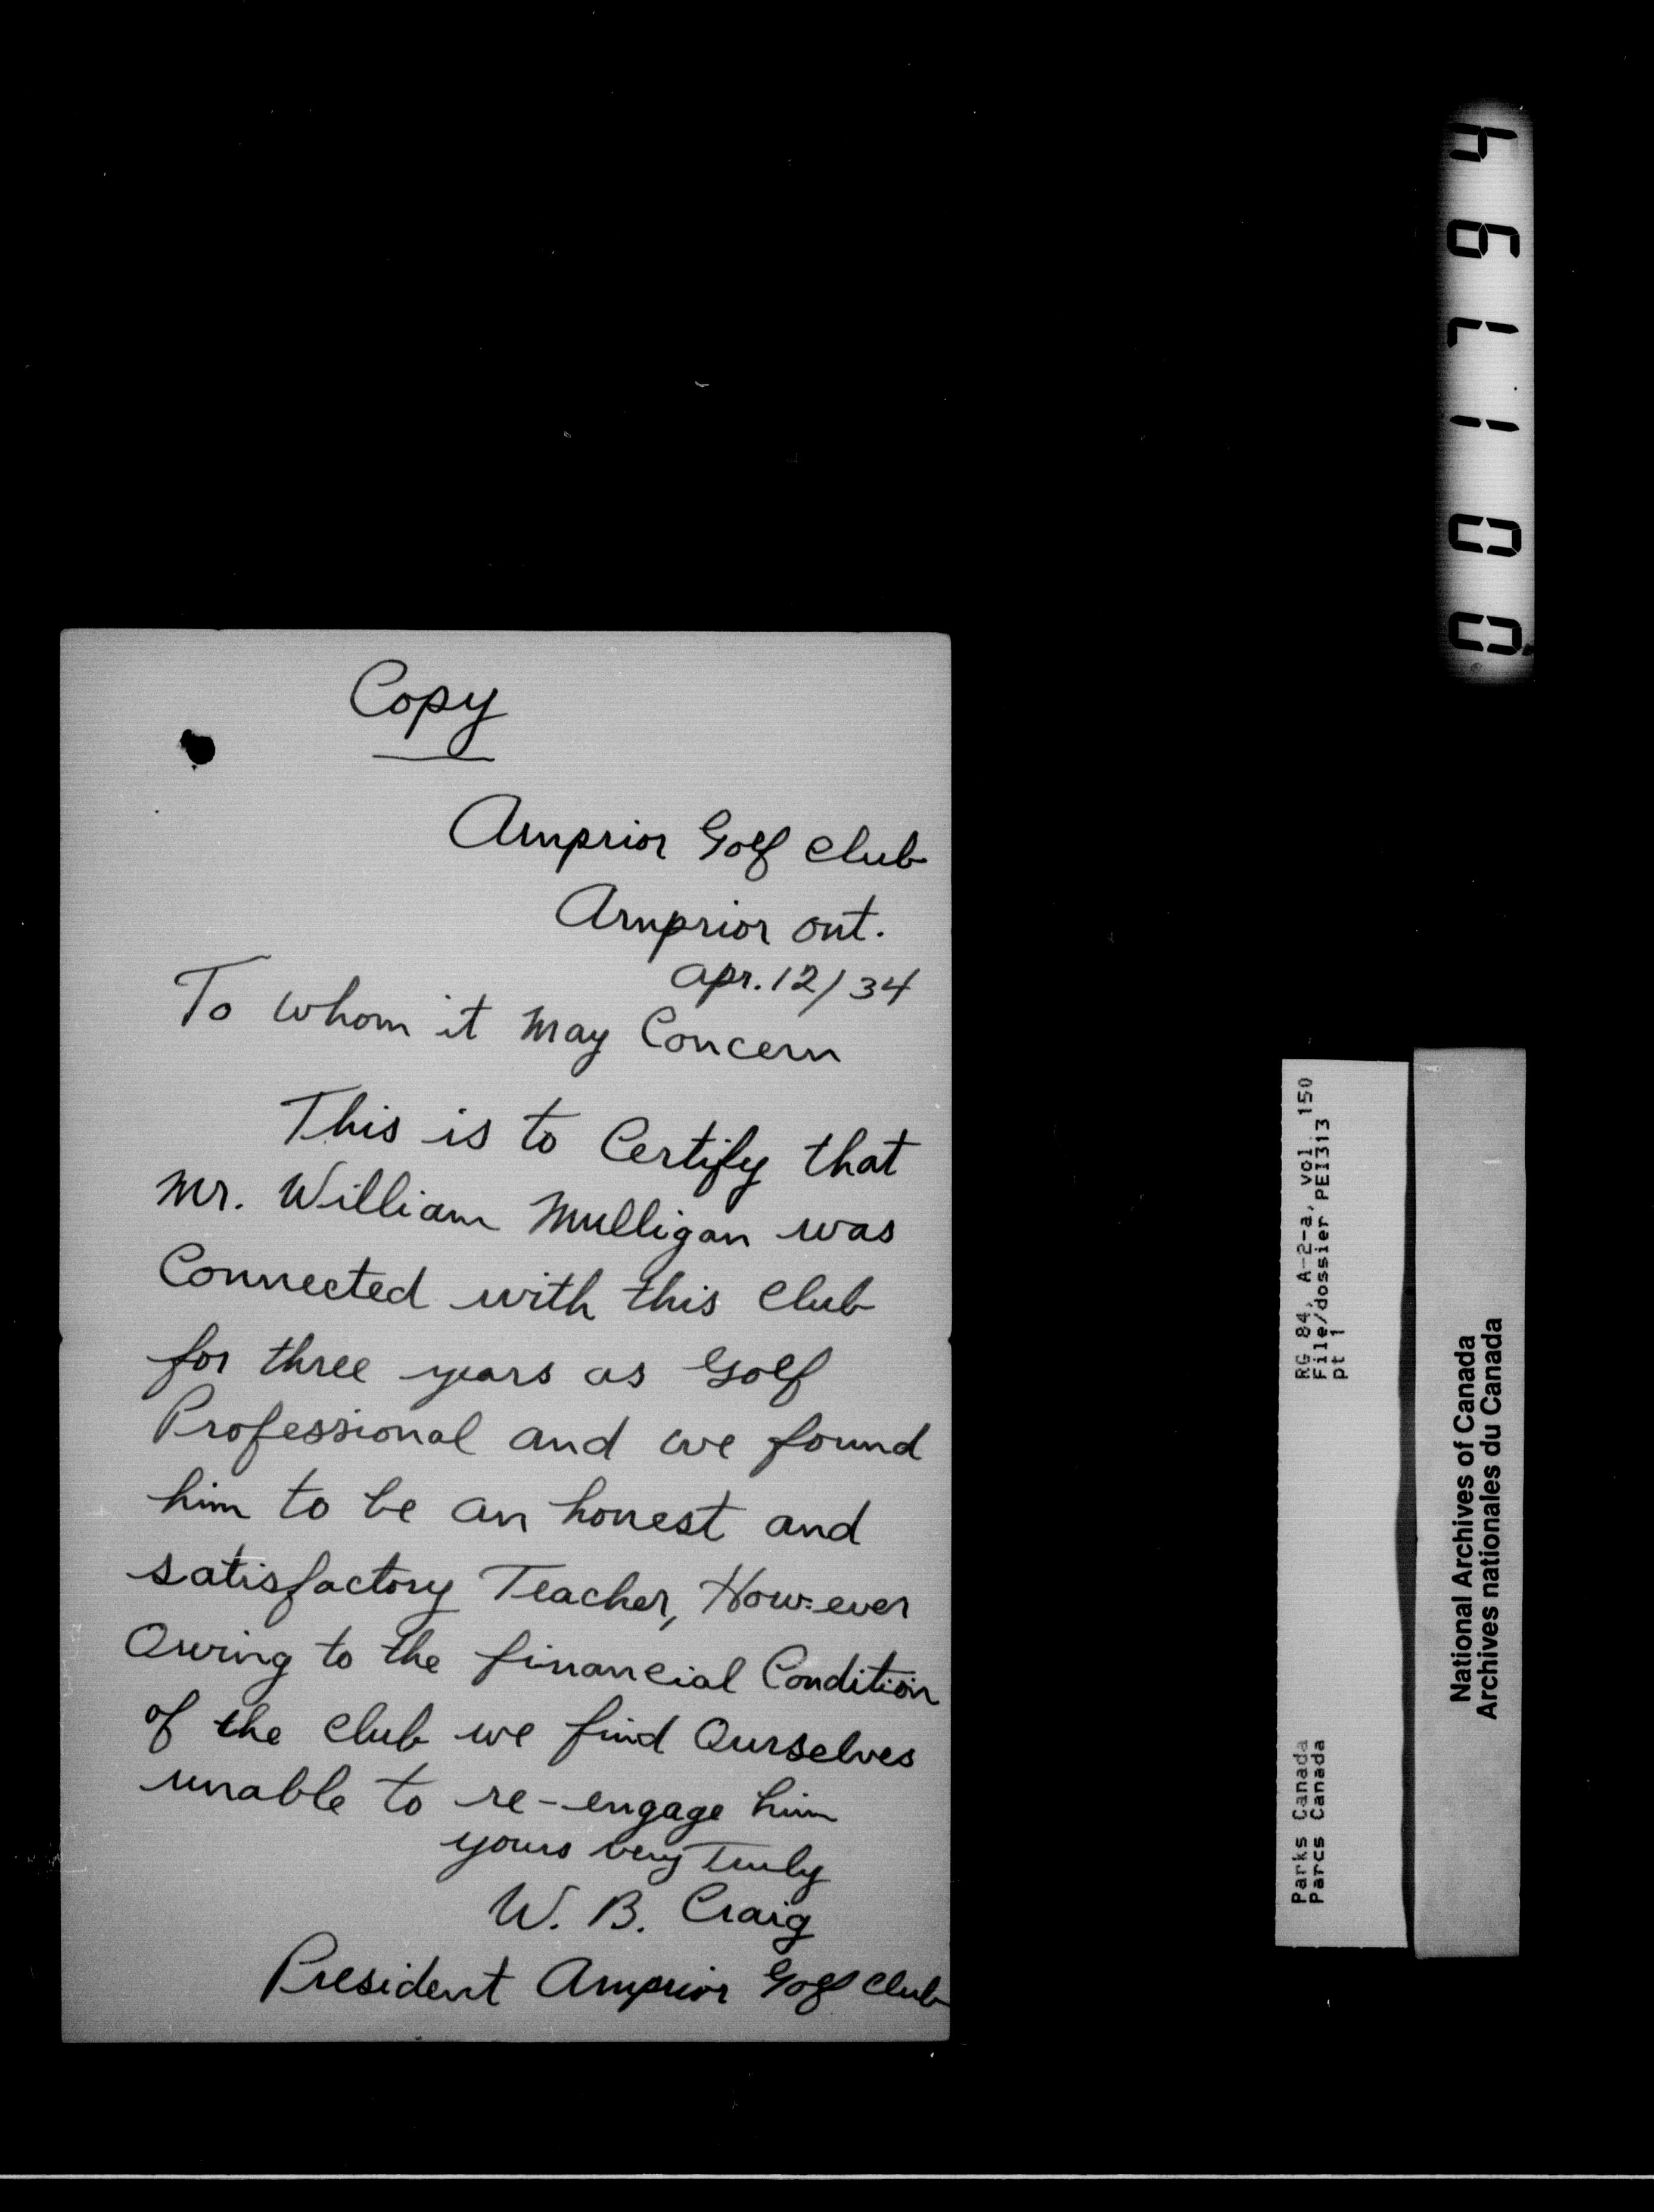 Copy
Arnprior Golf Club
Arnprior Ont.
Apr. 12/34
To Whom it May Concern
This is to Certify that
Mr. William Mulligan was
Connected with this Club
for three years as Golf
Professional and we found
him to be an honest and
satisfactory Teacher, How-ever
Owing to the financial Condition
of the Club we find Ourselves
unable to re-engage him
yours very Truly
W. B. Craig
President Arnprior Golf Club
001794
RG 84, A-2-a, vol. 150
File/dossier PEI313
pt 1
Parks Canada
Parcs Canada
National Archives of Canada
Archives nationales du Canada